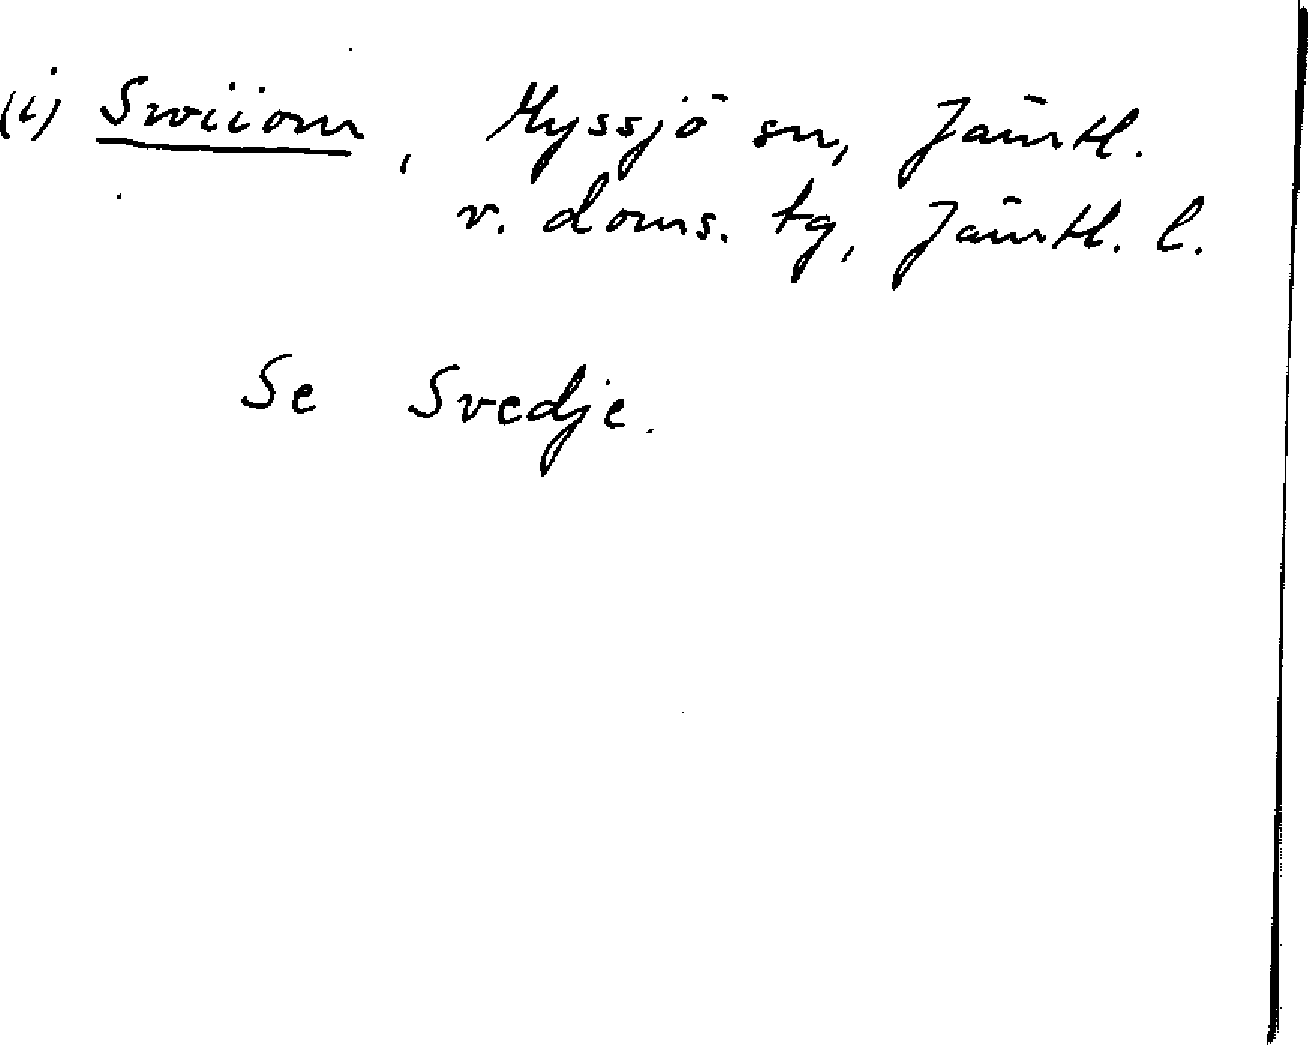 (i) Swiiom, Myssjö sn, Jämtl.
v. doms. tg, Jämtl. l.
Se Svedje.